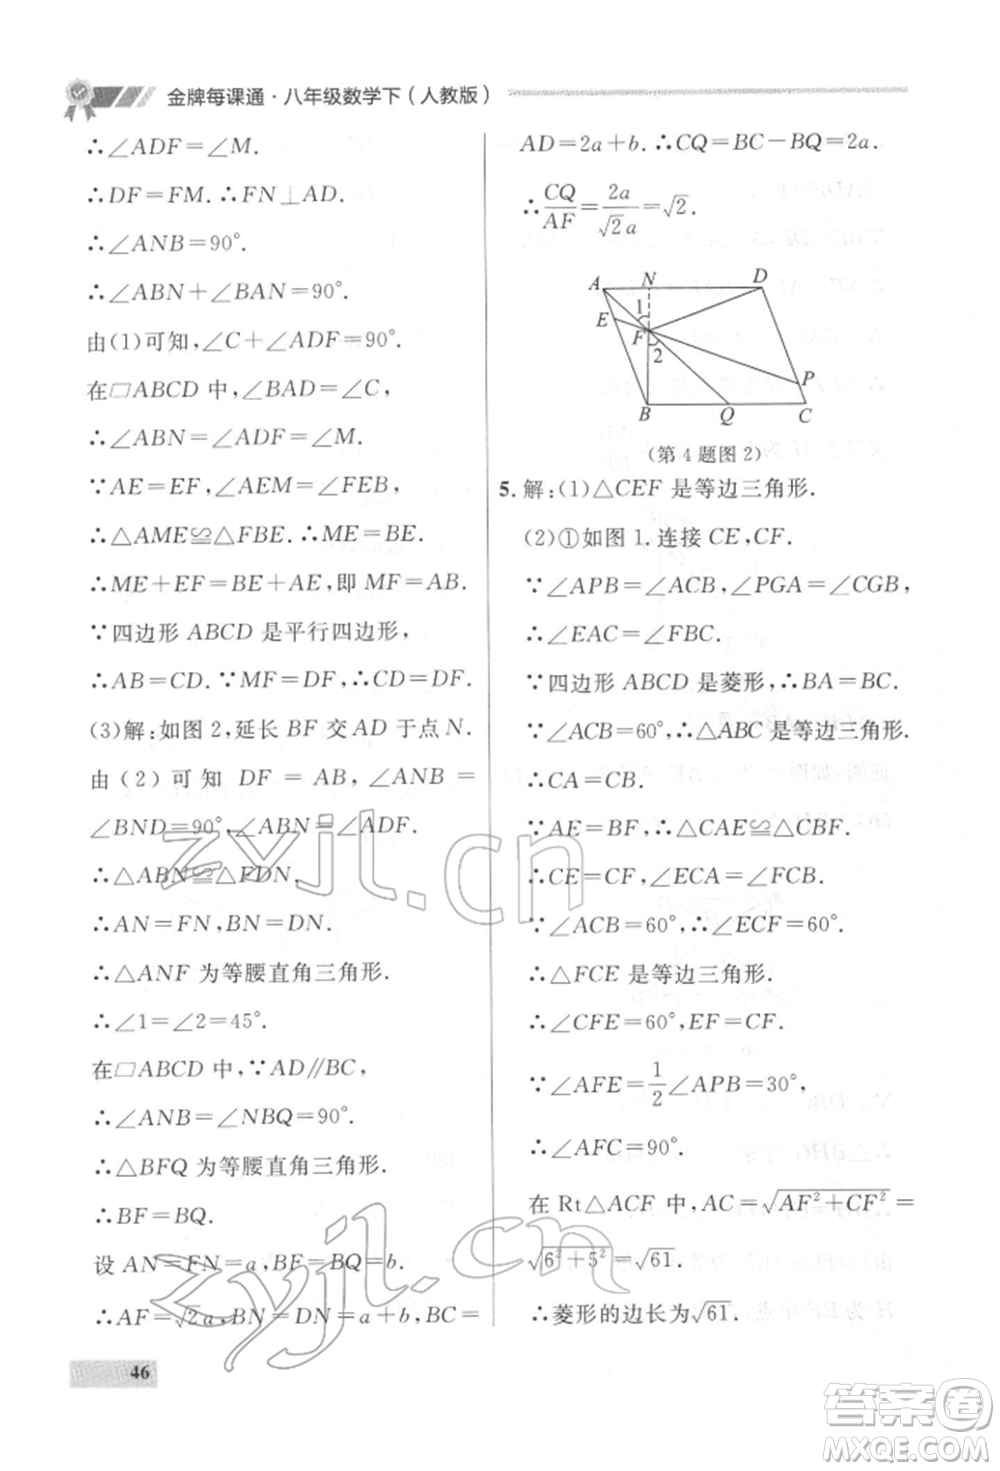 金牌每课通·八年级数学下(人教版)
∴∠ADF=∠M.
∴DF=FM.∴FN⊥AD.
∴∠ANB=90°.
∴∠ABN+∠BAN=90°.
由(1)可知,∠C+∠ADF=90°.
在□ABCD中,∠BAD=∠C,
∴∠ABN=∠ADF=∠M.
∵AE=EF,∠AEM=∠FEB,
∴△AME≌△FBE.∴ME=BE.
∴ME+EF=BE+AE,即MF=AB.
∵四边形ABCD是平行四边形,
∴AB=CD.∵MF=DF,∴CD=DF.
(3)解:如图2,延长BF交AD于点N.
由(2)可知DF=AB,∠ANB=
∠BND=90°,∠ABN=∠ADF,
∴△ABN≌△FDN.
∴AN=FN,BN=DN.
∴△ANF为等腰直角三角形.
∴∠1=∠2=45°.
在□ABCD中,∵AD∥BC,
∴∠ANB=∠NBQ=90°.
∴△BFQ为等腰直角三角形.
∴BF=BQ.
设AN=FN=a,BF=BQ=b,
∴AF=√2a,BN=DN=a+b,BC=
46
AD=2a+b.∴CQ=BC-BQ=2a.
∴CQ/AF=2a/√2a=√2.
A N D
E 1 F 2 P
B Q C
(第4题图2)
5.解:(1)△CEF是等边三角形.
(2)①如图1,连接CE,CF.
∵∠APB=∠ACB,∠PGA=∠CGB,
∴∠EAC=∠FBC.
∵四边形ABCD是菱形,∴BA=BC.
∵∠ACB=60°,∴△ABC是等边三角形.
∴CA=CB.
∵AE=BF,∴△CAE≌△CBF.
∴CE=CF,∠ECA=∠FCB.
∵∠ACB=60°,∴∠ECF=60°.
∴△FCE是等边三角形.
∴∠CFE=60°,EF=CF.
∵∠AFE=1/2∠APB=30°,
∴∠AFC=90°.
在Rt△ACF中,AC=√AF²+CF²=
√6²+5²=√61.
∴菱形的边长为√61.
zyjl.cn
zyjl.cn
答案圈
MXQE.COM